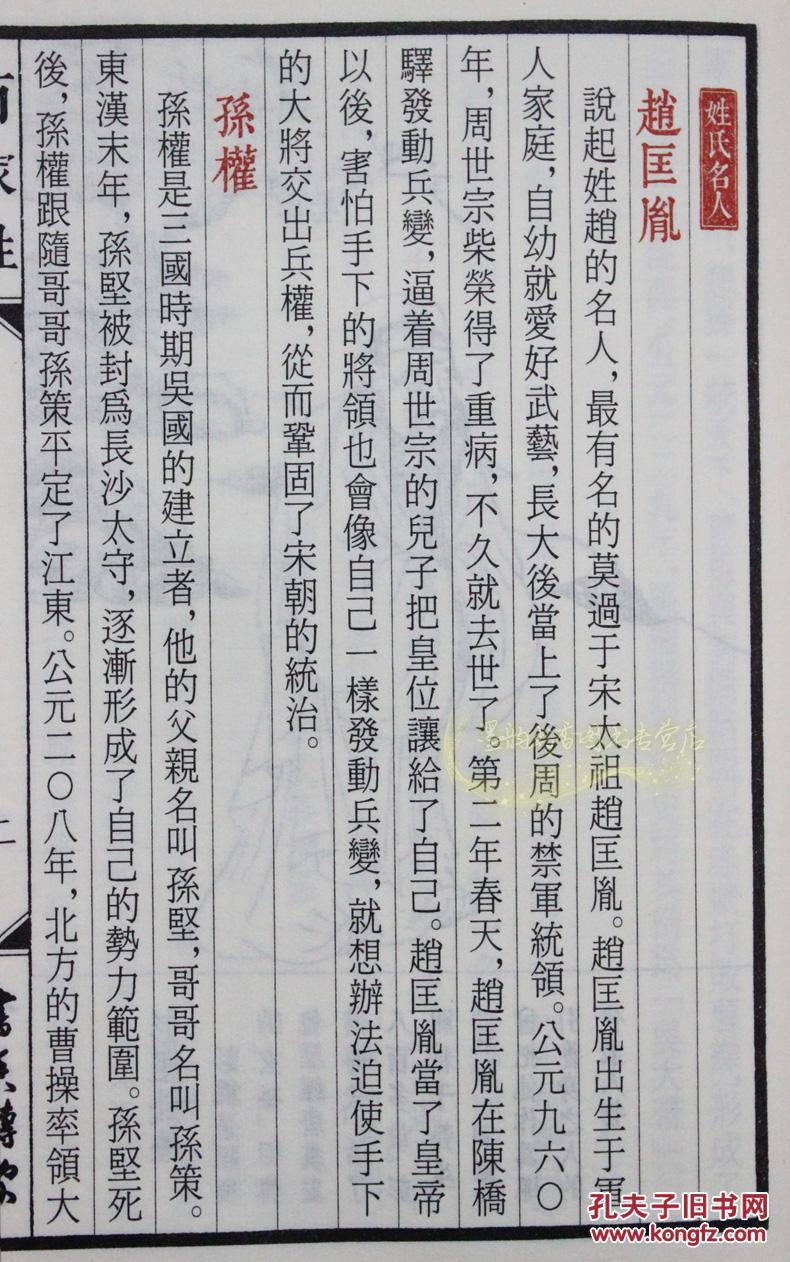 姓氏名人
趙匡胤
說起姓趙的名人，最有名的莫過于宋太祖趙匡胤。趙匡胤出生于軍
人家庭，自幼就愛好武藝，長大後當上了後周的禁軍統領。公元九六〇
年，周世宗柴榮得了重病，不久就去世了。第二年春天，趙匡胤在陳橋
驛發動兵變，逼着周世宗的兒子把皇位讓給了自己。趙匡胤當了皇帝
以後，害怕手下的將領也會像自己一樣發動兵變，就想辦法迫使手下
的大將交出兵權，從而鞏固了宋朝的統治。
孫權
孫權是三國時期吳國的建立者，他的父親名叫孫堅，哥哥名叫孫策。
東漢末年，孫堅被封爲長沙太守，逐漸形成了自己的勢力範圍。孫堅死
後，孫權跟隨哥哥孫策平定了江東。公元二〇八年，北方的曹操率領大
百家姓
孔夫子旧书网
www.kongfz.com